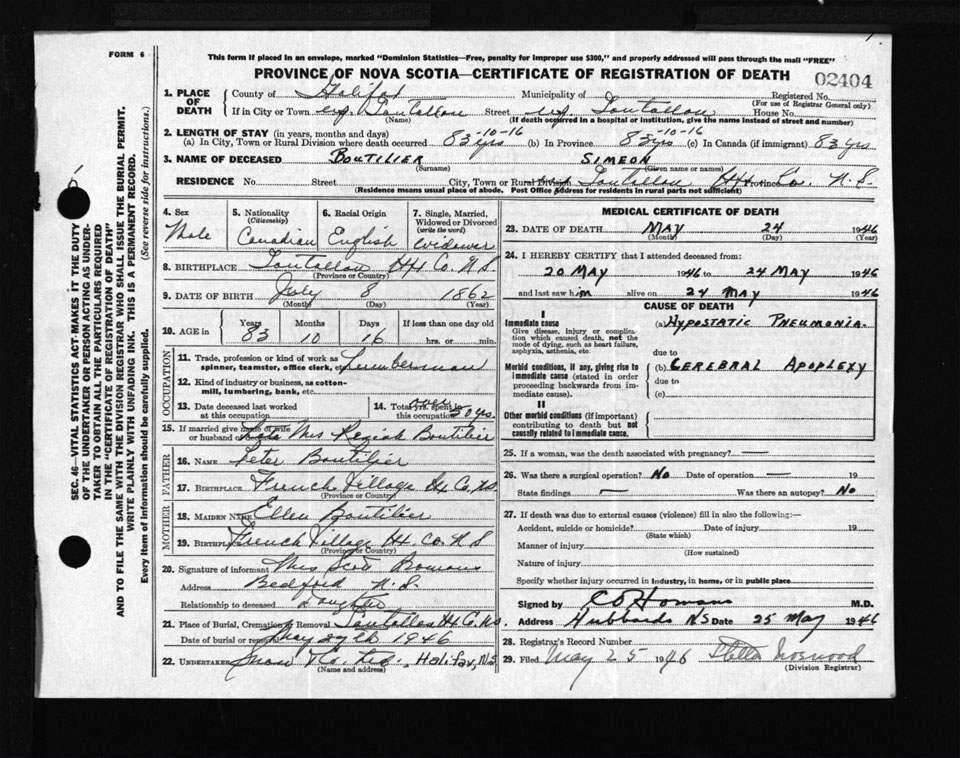 FORM 6
This form if placed in an envelope, marked "Dominion Statistics—Free, penalty for improper use $300," and properly addressed will pass through the mail "FREE"
PROVINCE OF NOVA SCOTIA—CERTIFICATE OF REGISTRATION OF DEATH 02404
SEC. 46—VITAL STATISTICS ACT—MAKES IT THE DUTY
OF THE UNDERTAKER OR PERSON ACTING AS UNDER-
TAKER TO OBTAIN ALL THE PARTICULARS REQUIRED
IN THE "CERTIFICATE OF REGISTRATION OF DEATH"
AND TO FILE THE SAME WITH THE DIVISION REGISTRAR WHO SHALL ISSUE THE BURIAL PERMIT.
WRITE PLAINLY WITH UNFADING INK. THIS IS A PERMANENT RECORD.
Every item of information should be carefully supplied. (See reverse side for instructions.)
1. PLACE OF DEATH
County of Halifax Municipality of Registered No.
(For use of Registrar General only)
If in City or Town Tantallon Street Tantallon House No.
(Name) (If death occurred in a hospital or institution, give the name instead of street and number)
2. LENGTH OF STAY (in years, months and days)
(a) In City, Town or Rural Division where death occurred 83 yrs-10-16 (b) In Province 83 yrs-10-16 (c) In Canada (if immigrant) 83 yrs
3. NAME OF DECEASED BOUTILIER SIMEON
(Surname) (Given name or names)
RESIDENCE No. Street City, Town or Rural Division Tantallon Hx Province Co. N.S.
(Residence means usual place of abode. Post Office Address for residents in rural parts not sufficient)
4. Sex Male
5. Nationality (Citizenship) Canadian
6. Racial Origin English
7. Single, Married, Widowed or Divorced (write the word) Widower
8. BIRTHPLACE Tantallon Hx Co. N.S
(Province or Country)
9. DATE OF BIRTH July 8 1862
(Month) (Day) (Year)
10. AGE in Years Months Days If less than one day old
83 10 16 hrs. or min.
OCCUPATION
11. Trade, profession or kind of work as spinner, teamster, office clerk, etc. Lumberman
12. Kind of industry or business, as cotton-mill, lumbering, bank, etc.
13. Date deceased last worked at this occupation
14. Total yrs. spent in this occupation over 50 yrs.
15. If married give name of wife or husband of Late Mrs Keziah Boutilier
FATHER
16. NAME Peter Boutilier
17. BIRTHPLACE French Village Hx Co. NS
(Province or Country)
MOTHER
18. MAIDEN NAME Ellen Boutilier
19. BIRTHPLACE French Village Hx. Co. N S
(Province or Country)
20. Signature of informant Mrs Scot Romans
Address Bedford N.S.
Relationship to deceased Daughter
21. Place of Burial, Cremation or Removal Tantallon Hx Co. NS.
Date of burial or removal May 27th 1946
22. UNDERTAKER Snow & Co. Ltd. Halifax, NS
(Name and address)
MEDICAL CERTIFICATE OF DEATH
23. DATE OF DEATH MAY 24 1946
(Month) (Day) (Year)
24. I HEREBY CERTIFY that I attended deceased from:
20 MAY 1946 to 24 MAY 1946
and last saw him alive on 24 MAY 1946
CAUSE OF DEATH
I
Immediate cause (a) HYPOSTATIC PNEUMONIA.
Give disease, injury or complication which caused death, not the mode of dying, such as heart failure, asphyxia, asthenia, etc.
due to
Morbid conditions, if any, giving rise to immediate cause (stated in order proceeding backwards from immediate cause). (b) CEREBRAL APOPLEXY
due to
(c)
II
Other morbid conditions (if important) contributing to death but not causally related to immediate cause.
25. If a woman, was the death associated with pregnancy? —
26. Was there a surgical operation? No Date of operation — 19
State findings — Was there an autopsy? No
27. If death was due to external causes (violence) fill in also the following:—
Accident, suicide or homicide? Date of injury 19
(State which)
Manner of injury
(How sustained)
Nature of injury
Specify whether injury occurred in industry, in home, or in public place
Signed by M.D.
Address Hubbards NS Date 25 May 1946
28. Registrar's Record Number
29. Filed May 25 1946 Stella
(Division Registrar)